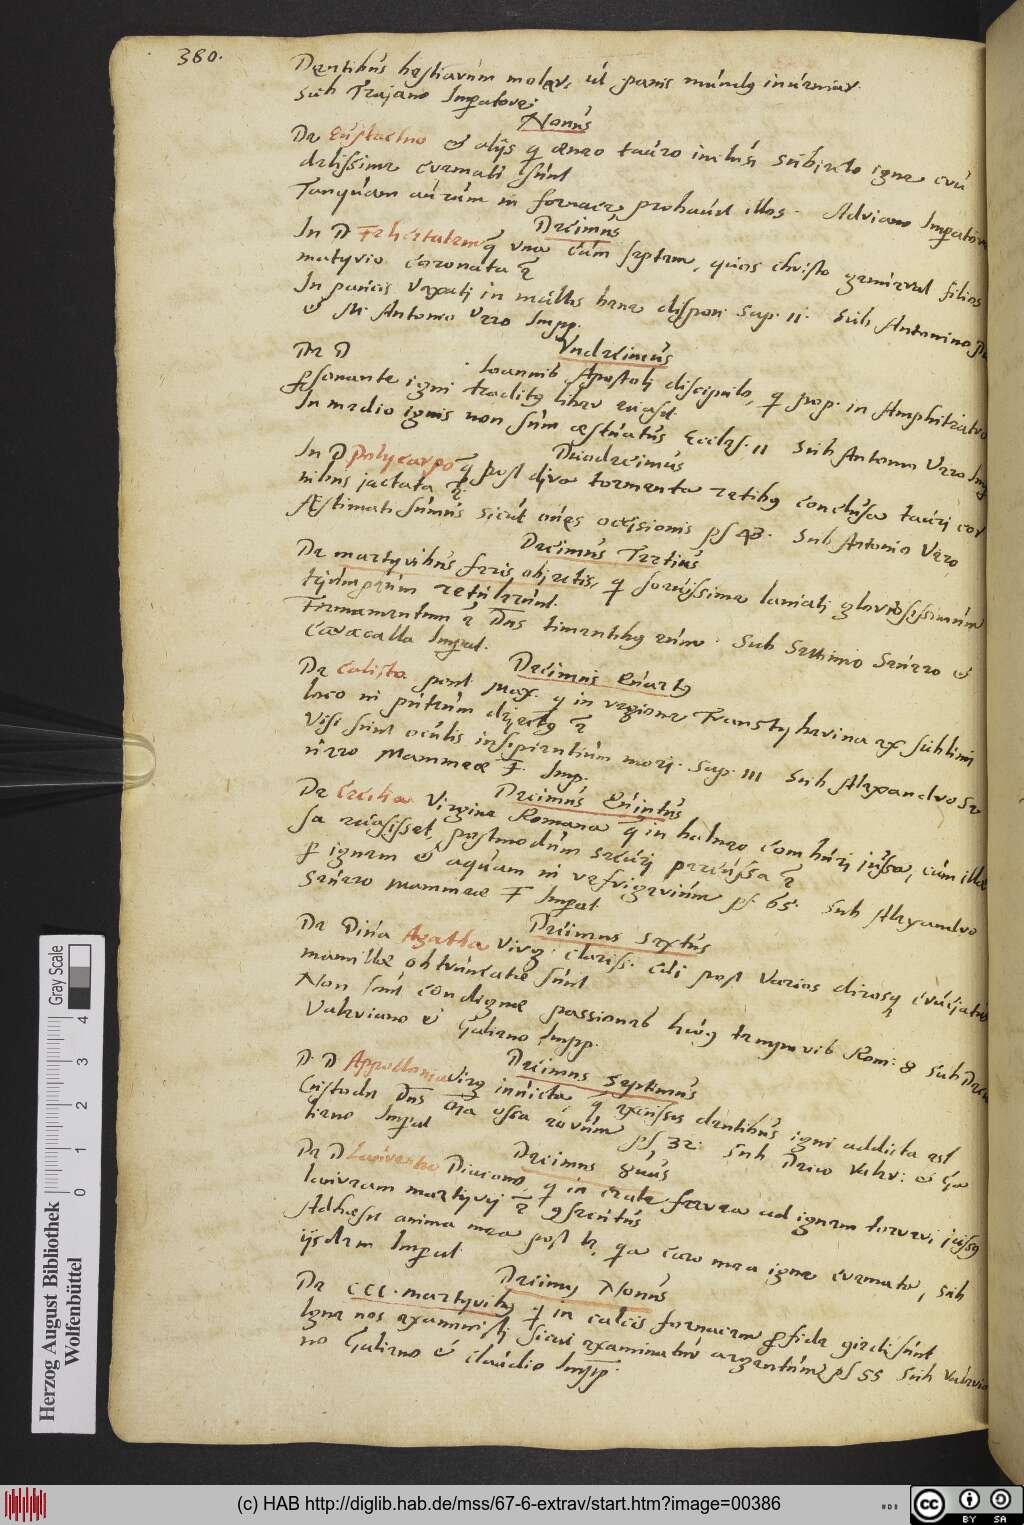 380.
Dentibus bestiarum molar, ut panis mundus inveniar.
Sub Trajano Imperatore
Nonus
De Eustachio et alijs q aeneo tauro inclusi subjecto igne cru
delissime cremati sunt
Tanquam aurum in fornace probavit illos. Adriano Imperatore
Decimus
In D Felicitatem q una cum septem, quos christo genuerat filios
martyrio coronata ē
In paucis vexati in multis bene dispon. Sap. 11. Sub Antonino
et M. Antonio Vero Impp.
Undecimus
De D Ioannis Apostoli discipulo, q prop. in Amphitheatro
personante igni traditus liber evasit
In medio ignis non sum aestuatus Eccles. 11 Sub Antonino Vero Imp
Duodecimus
In D Polycarpo q post diva tormenta retibus conclusa tauri cor
nibus jactata ē.
AEstimati sumus sicut oves occisionis ps 43. Sub Antonio Vero
Decimus Tertius
De martyribus feris objectis, q saevissime laniati gloriosissimum
triumphum retulerunt.
Firmamentum ē Dns timentibus eum. Sub Settimio Severo et
Caracalla Imperat.
Decimus Quartus
De Calisto pont Max. q in regione Transtyberina ex sublimi
loco in puteum dejectus ē
Visi sunt oculis insipientium mori. Sap. III Sub Alexandro Se
vero Mammeae F. Imp.
Decimus Quintus
De Cecilia Virgine Romana q in balneo comburi jussa, cum illa
sa evasisset, postmodum securi percussa ē
per ignem et aquam in refrigerium ps 65. Sub Alexandro
Severo Mammeae F Imperat.
Decimus Sextus
De Diva Agatha Virg. clariss. cui post varios dirosq cruciatus
mamillae obtruncatae sunt
Non sunt condignae passiones huius temporis Rom: 8 Sub Decio
Valeriano et Galieno Impp.
Decimus Septimus
D. D Appollonia Virg invicta q excussis dentibus igni addicta est
Custodit Dns oia ossa eorum ps, 32. Sub Decio Valer: et Ga
lieno Imperat
Decimus 8uus
De D Laurentio Diacono q in crate ferrea ad ignem torreri jussus
lauream martyrij ē consecutus
Adhaesit anima mea post te, qa caro mea igne cremata, sub
ijsdem Imperat
Decimus Nonus
De CCC. martyribus q in calcis fornacem p fide gieeti sunt
Igne nos examinasti sicut examinatur argentum ps 55 Sub Valeria
no Galieno et Claudio Impp
Gray Scale
0 1 2 3 4
Herzog August Bibliothek
Wolfenbüttel
(c) HAB http://diglib.hab.de/mss/67-6-extrav/start.htm?image=00386
HAB
cc BY SA